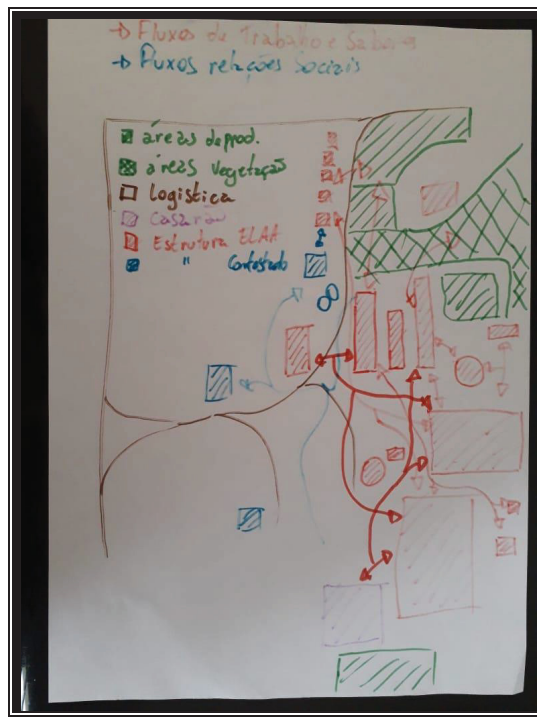 → Fluxos de Trabalho e Saberes
→ Fluxos relações Sociais
áreas de prod.
áreas vegetação
Logística
Casarão
Estrutura ELAA
" Contestado